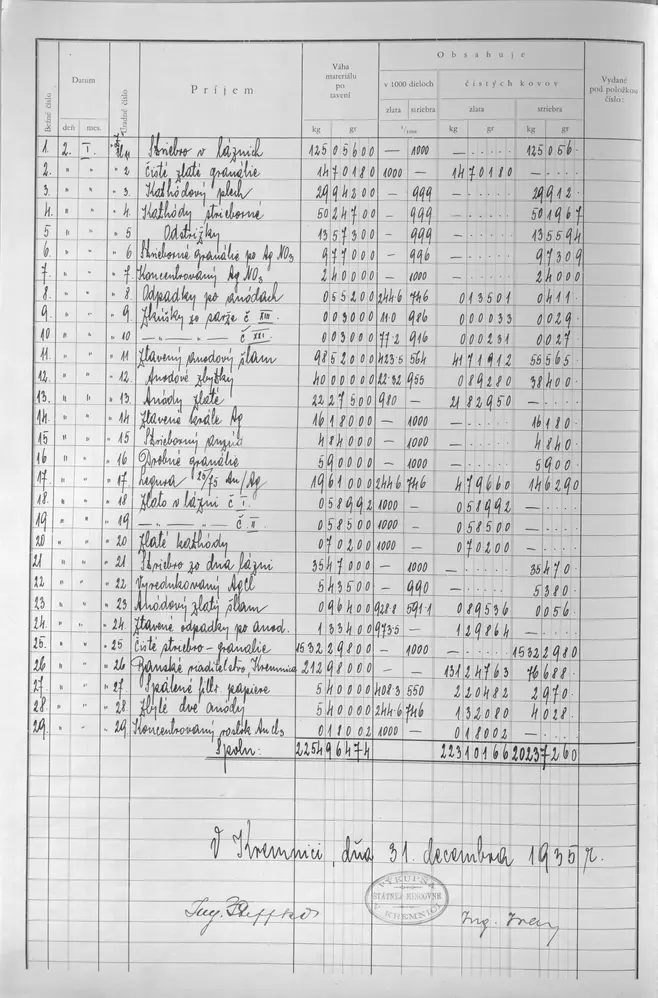 Obsahuje
Bežné číslo
Datum
Úradné číslo
Príjem
Váha materiálu po tavení
v 1000 dieloch
čistých kovov
Vydané pod položkou číslo:
deň mes.
zlata striebra
zlata striebra
kg gr 1/1000 kg gr kg gr
1. 2. I. Striebro v lázních 12505600 — 1000 — 125056
2. " " " 2 čisté zlaté granálie 1470180 1000 — 1470180 —
3. " " " 3. Kathódový plech 2994200 — 999 — 29912
4. " " " 4. Kathódy strieborné 5024700 — 999 — 501967
5 " " " 5 Odstrižky 1357300 — 999 — 135594
6. " " " 6 Strieborné granálie po Ag NO3 977000 — 996 — 97309
7. " " " 7. Koncentrovaný Ag NO3 240000 — 1000 — 24000
8. " " " 8. Odpadky po anódach 055200 244·6 746 013501 0411
9. " " " 9 zo sarže č XIII. 003000 11·0 986 000033 0029
10 " " " 10 — " — " — č 003000 77·2 916 000231 0027
11. " " " 11 Ztavený anodový šlam 9852000 423·5 564 4171912 55565
12. " " " 12. Anodové zbytky 4000000 22·32 955 089280 38400
13. " " " 13. Anódy zlaté 2227500 980 — 2182950 —
14. " " " 14 Ztavené krále Ag 1618000 — 1000 — 16180
15 " " " 15 Strieborný 484000 — 1000 — 4840
16 " " " 16 Drobné granálie 590000 — 1000 — 5900
17. " " " 17. Legura 25/75 Au/Ag 1961000 244·6 746 479660 146290
18. " " " 18 Zlato v lázni č I. 058992 1000 — 058992 —
19 " " " 19 — " — " — č II 058500 1000 — 058500 —
20 " " " 20 Zlaté kathódy 070200 1000 — 070200 —
21 " " " 21 Striebro zo dna lázni 3547000 — 1000 — 35470
22 " " " 22 Vyredukovaný AgCl 543500 — 990 — 5380
23 " " " 23 Anódový zlatý šlam 096400 928·8 591·1 089536 0056
24. " " " 24. Ztavené odpadky po anod. 133400 973·5 — 129864 —
25. " " " 25 čisté striebro - granálie 15322 9800 — 1000 — 15322980
26 " " " 26 Banské riaditelstvo, Kremnica 21298000 — — 13124763 76688
27. " " " 27. Spálené filtr. papiere 540000 408·3 550 220482 2970
28. " " " 28. Zbylé dve anódy 540000 244·6 746 132080 4028
29. " " " 29. Koncentrovaný roztok AuCl3 018002 1000 — 018002
Spolu: 225496474 22310166 20237260
V Kremnici, dňa 31. decembra 1935 r.
VÝKUPŇA
ŠTÁTNEJ MINCOVNE
V KREMNICI
Ing.
Ing.